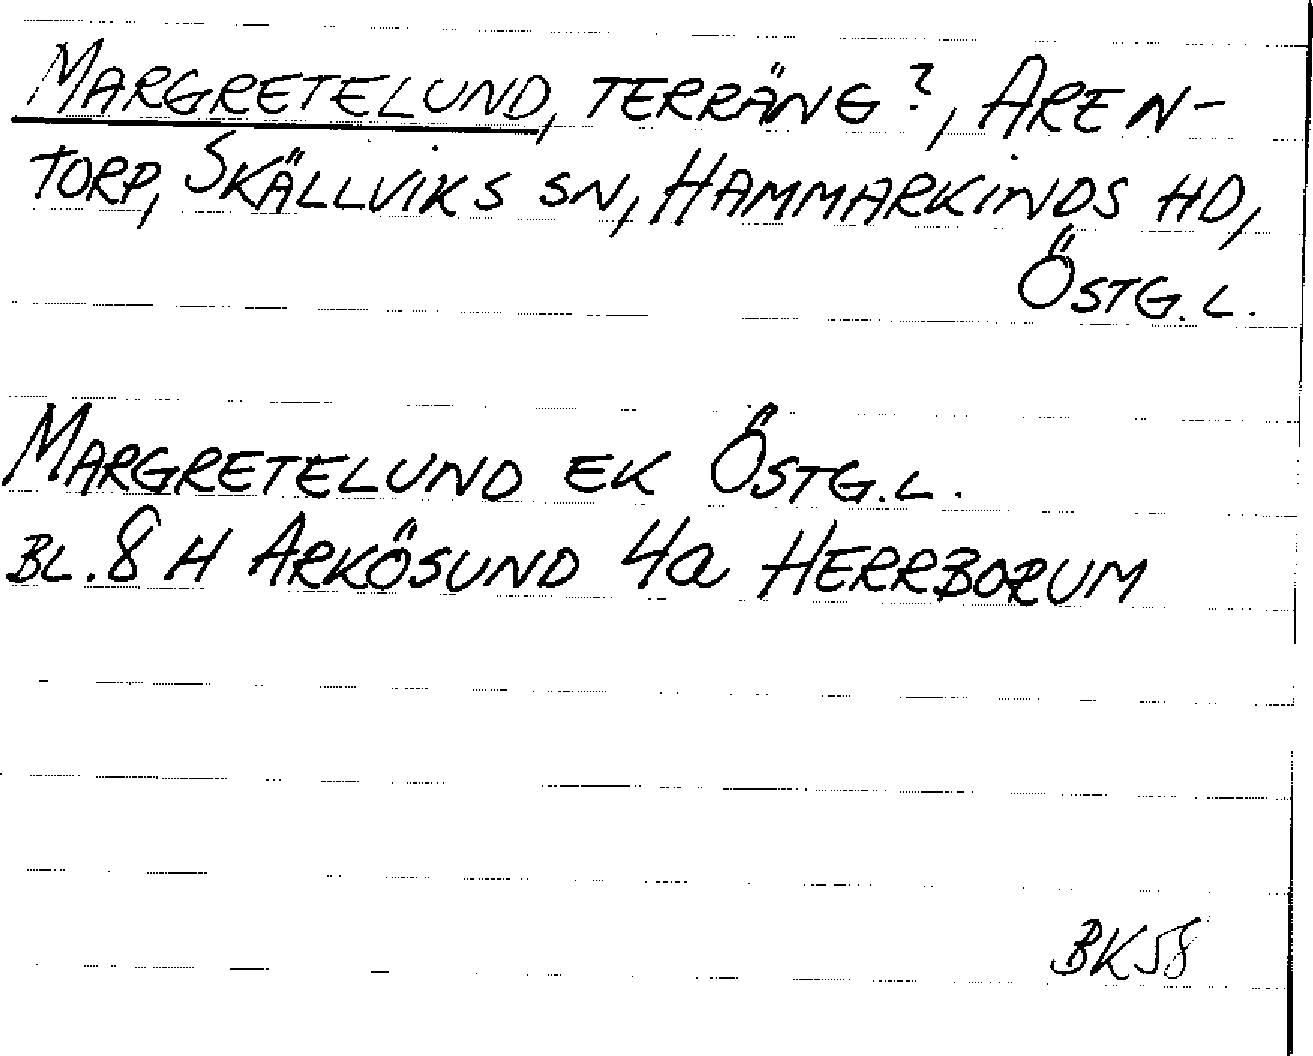 MARGRETELUND, TERRÄNG?, AREN-
TORP, SKÄLLVIKS SN, HAMMARKINDS HD,
ÖSTG.L.
MARGRETELUND EK ÖSTG.L.
BL. 8 H ARKÖSUND 4a HERRBORUM
BK58